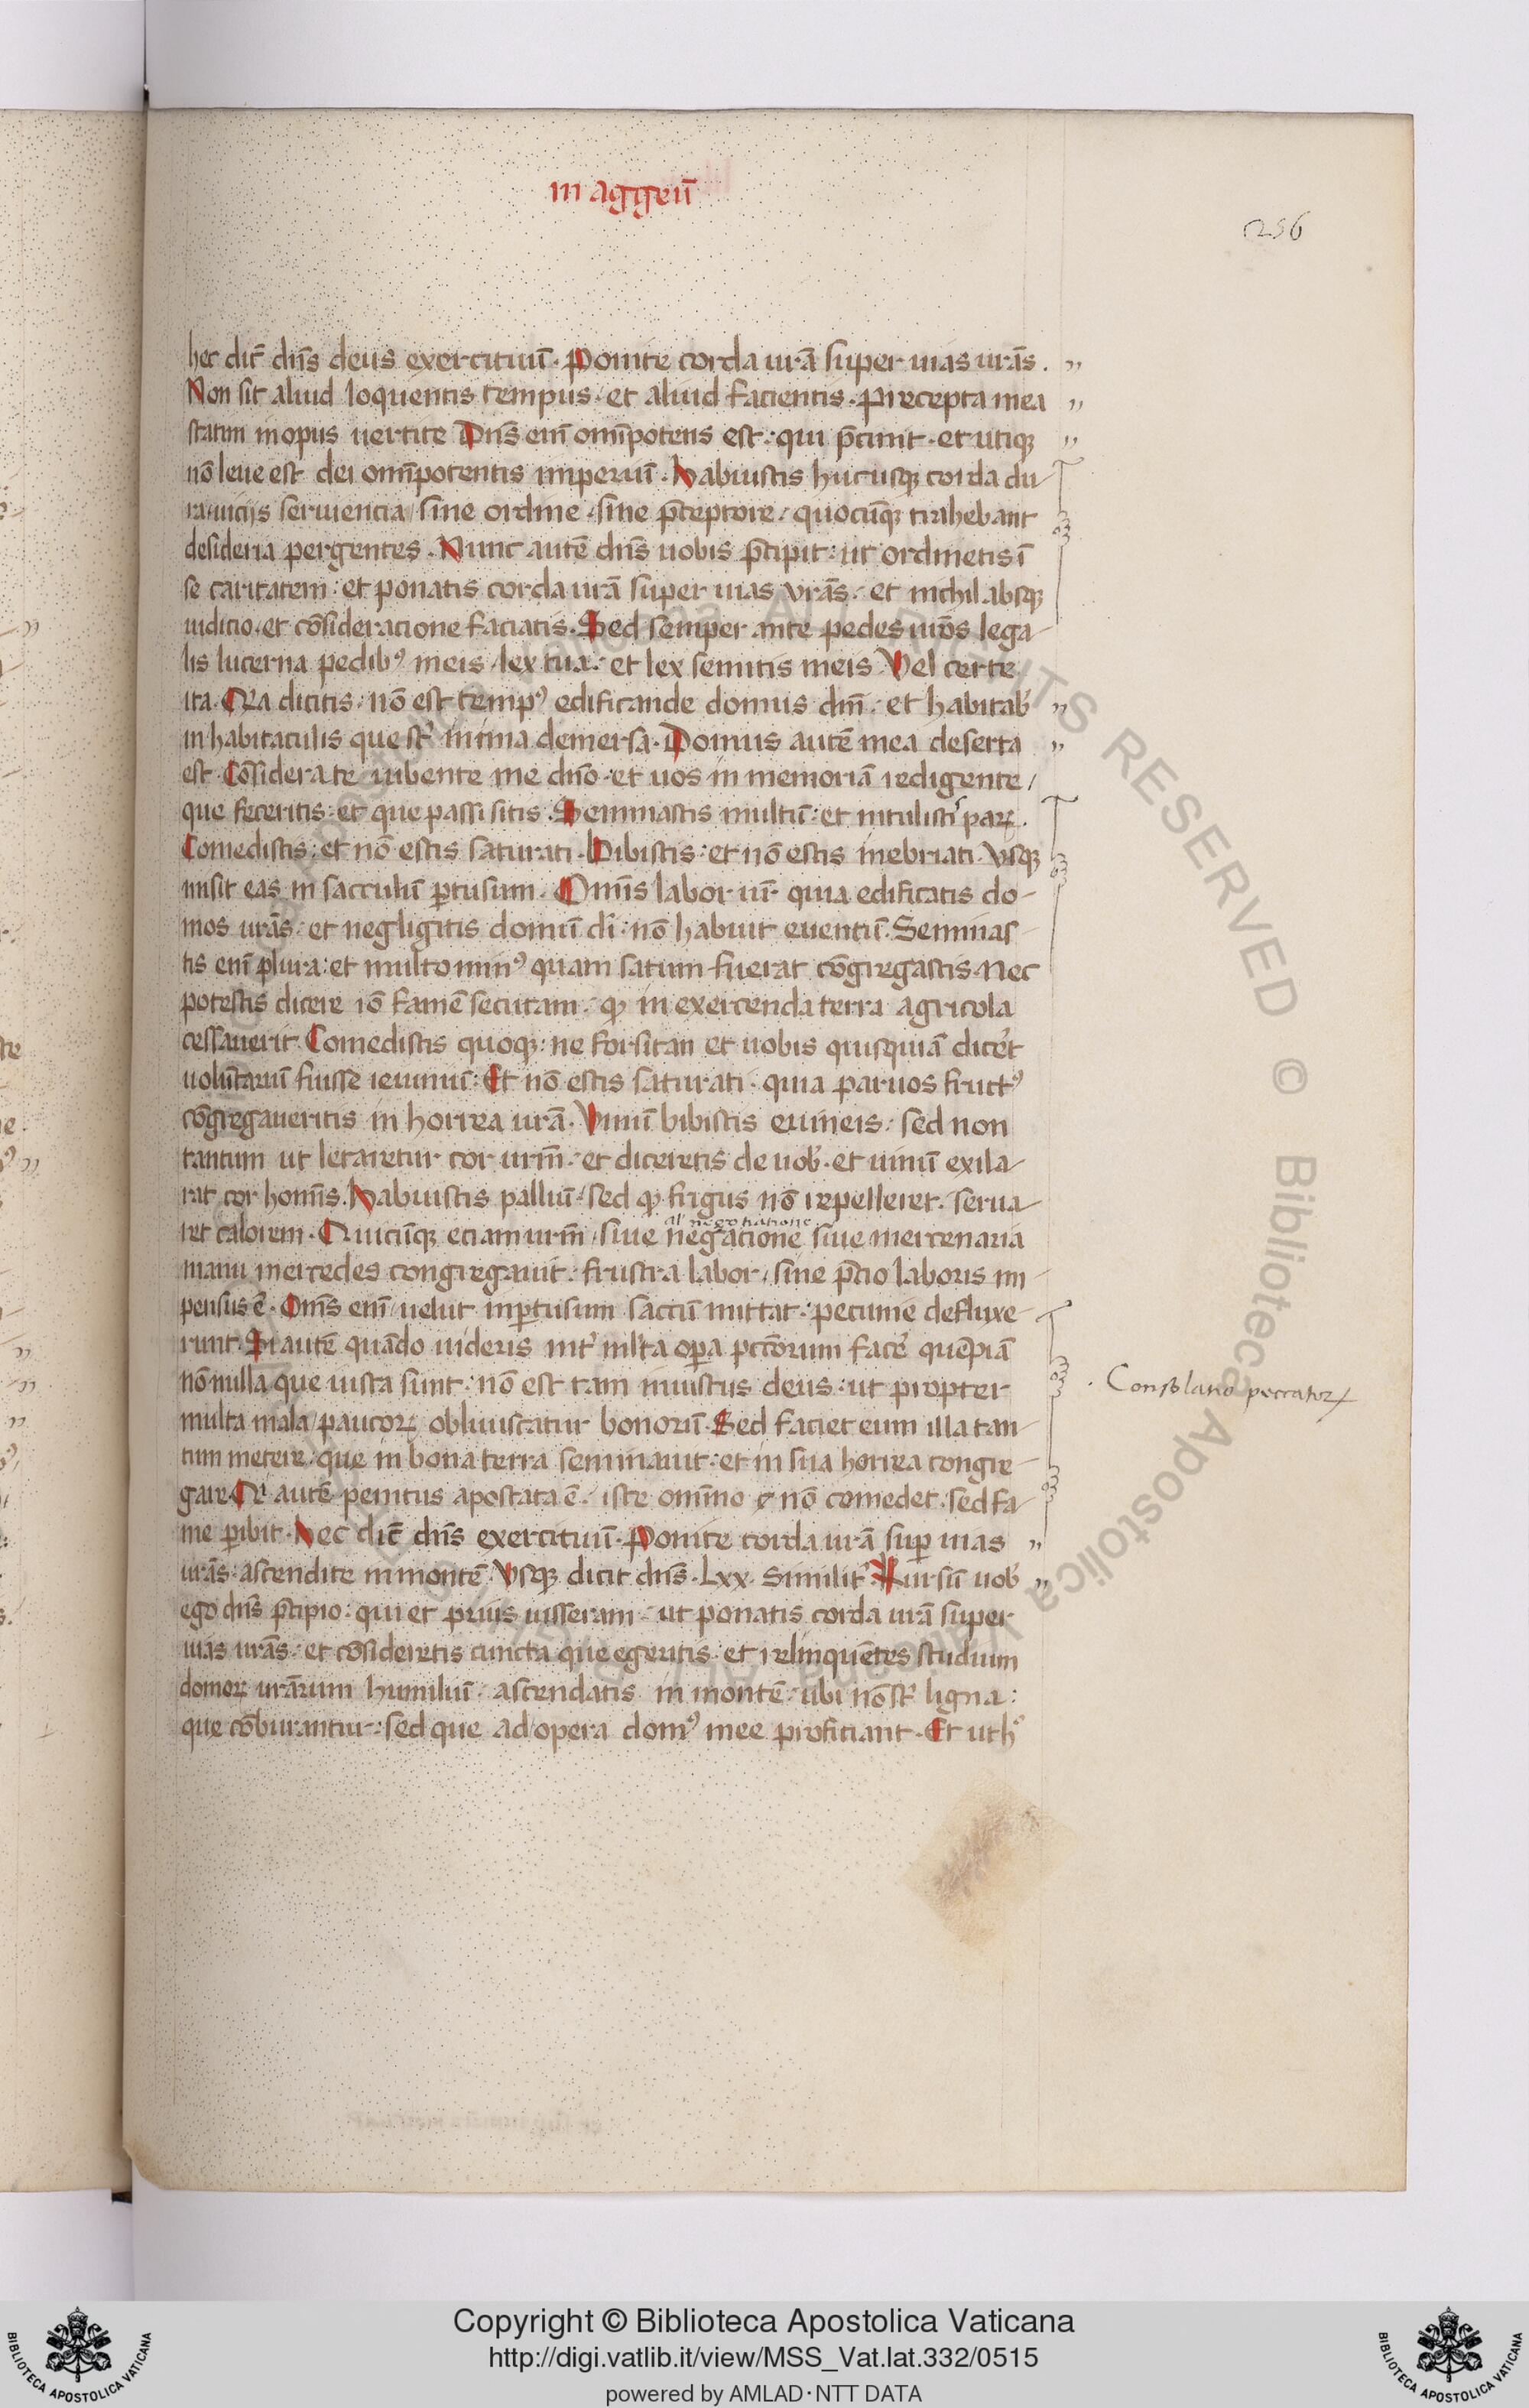 in aggeū
256
hec dic̄ dn̄s deus exercituū. Ponite corda ur̄a super uias ur̄as.
Non sit aliud loquentis tempus: et aliud facientis. Precepta mea
statim in opus uertite Dn̄s eni om̄ipotens est: qui p̄cinit. et utiqꝫ
nō leue est dei om̄ipotentis imperiū. Habuistis hucusqꝫ corda du
ra uiciis seruiencia sine ordine. sine p̄ceptore. quocūqꝫ trahebant
desideria pergentes. Nunc autē dn̄s uobis p̄cipit: ut ordinetis ī
se caritatem: et ponatis corda ur̄a super uias vr̄as. et nichil absqꝫ
iudicio. et cōsideracione faciatis. Sed semper ante pedes ur̄os lega
lis lucerna pedibꝰ meis lex tua: et lex semitis meis Vel certe
ita. Quia dicitis: nō est tempꝰ edificande domus dn̄i: et habitab'
in habitaculis que st' in ima demersa. Domus autē mea deserta
est. Cōsiderate iubente me dn̄o. et uos in memoriā redigente
que feceritis: et que passi sitis. Seminastis multū: et intulistis parꝫ.
Comedistis: et nō estis saturati. Bibistis: et nō estis inebriati. vsqꝫ
misit eas in sacculū ꝑtusum. Omīs labor ur̄. quia edificatis do
mos ur̄as: et negligitis domū di: nō habuit euentū. Seminas
tis eni plura: et multo minꝰ quam satum fuerat cōgregastis. Nec
potestis dicere iō famē secutam: qꝫ in exercenda terra agricola
cessauerit. Comedistis quoqꝫ: ne forsitan et uobis quisquiā dicet
uolūtariū fuisse ieiuniū: Et nō estis saturati. quia paruos fructꝰ
cōgregaueritis in horrea ur̄a. Vinū bibistis e uineis: sed non
tantum ut letaretur cor ur̄m: et diceretis de uob'. et uinū exila
rat cor homīs. Habuistis palliū: sed qꝫ frigus nō repelleret. serua
al' negotiatione
ret calorem. Quicūqꝫ eciam ur̄m siue negacione siue mercenaria
manu mercedes congregauit: frustra labor sine p̄cio laboris im
pensus ē. Om̄s eni uelut in ꝑtusum saccū mittat: pecunie defluxe
runt. Si autē quādo uideris int' m̄lta oꝑa pctōrum face' quēpiā
nō nulla que iusta sunt: nō est tam iniustus deus: ut propter
multa mala paucoꝝ obliuiscatur bonorū. Sed faciet eum illa tan
tum metere: que in bona terra seminauit: et in sua horrea congre
gare. Qi autē penitus apostata ē. iste omīno nō comedet. sed fa
me ꝑibit. Hec dic̄ dn̄s exercituū. Ponite corda ur̄a suꝑ uias
ur̄as: ascendite in montē. Vsqꝫ dicit dn̄s. Lxx. Similit' Rursū uob'
ego dn̄s p̄cipio: qui et prius iusseram: ut ponatis corda ur̄a super
uias ur̄as: et cōsideretis cuncta que egeritis: et relinquētes studium
domoꝝ ur̄arum humiliū: ascendatis in montē: ubi nō st' ligna:
que cōburantur: sed que ad opera domꝰ mee proficiant. Et ut h'
Consolatio peccatoꝝ
Copyright © Biblioteca Apostolica Vaticana
http://digi.vatlib.it/view/MSS_Vat.lat.332/0515
powered by AMLAD·NTT DATA